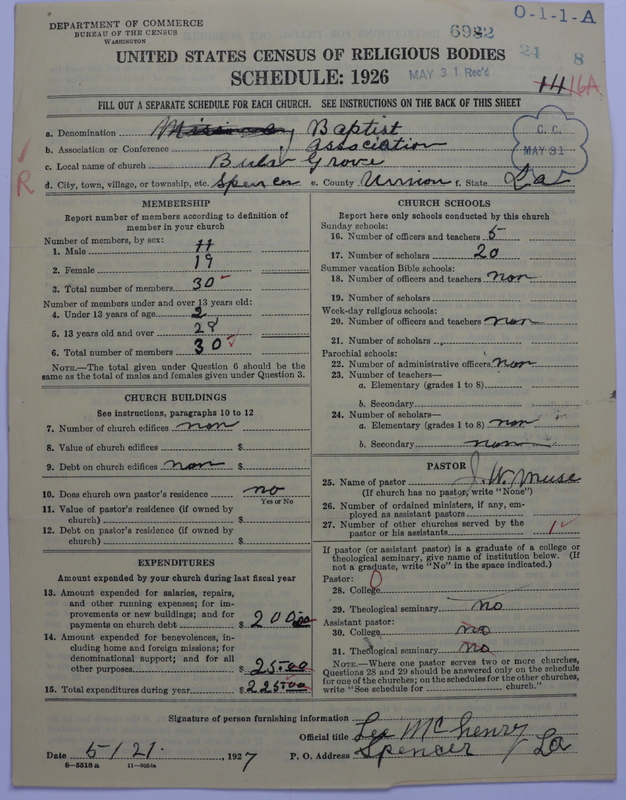 DEPARTMENT OF COMMERCE
BUREAU OF THE CENSUS
WASHINGTON
6982
0-1-1-A
24 8
UNITED STATES CENSUS OF RELIGIOUS BODIES
SCHEDULE: 1926
MAY 31 Rec'd
14 16A
FILL OUT A SEPARATE SCHEDULE FOR EACH CHURCH. SEE INSTRUCTIONS ON THE BACK OF THIS SHEET
a. Denomination Missionary Baptist
b. Association or Conference association
C. C.
MAY 31
c. Local name of church Bular Grove
R
d. City, town, village, or township, etc. Spencer e. County Unnion f. State La
MEMBERSHIP
Report number of members according to definition of
member in your church
Number of members, by sex:
1. Male 11
2. Female 19
3. Total number of members 30
Number of members under and over 13 years old:
4. Under 13 years of age 2
5. 13 years old and over 28
6. Total number of members 30
NOTE.—The total given under Question 6 should be
the same as the total of males and females given under Question 3.
CHURCH BUILDINGS
See instructions, paragraphs 10 to 12
7. Number of church edifices non
8. Value of church edifices $
9. Debt on church edifices non
10. Does church own pastor's residence no
Yes or No
11. Value of pastor's residence (if owned by
church) $
12. Debt on pastor's residence (if owned by
church) $
EXPENDITURES
Amount expended by your church during last fiscal year
13. Amount expended for salaries, repairs,
and other running expenses; for im-
provements or new buildings; and for
payments on church debt $ 200.00
14. Amount expended for benevolences, in-
cluding home and foreign missions; for
denominational support; and for all
other purposes $ 25.00
15. Total expenditures during year $ 225.00
CHURCH SCHOOLS
Report here only schools conducted by this church
Sunday schools:
16. Number of officers and teachers 5
17. Number of scholars 20
Summer vacation Bible schools:
18. Number of officers and teachers non
19. Number of scholars
Week-day religious schools:
20. Number of officers and teachers non
21. Number of scholars
Parochial schools:
22. Number of administrative officers non
23. Number of teachers—
a. Elementary (grades 1 to 8)
b. Secondary
24. Number of scholars—
a. Elementary (grades 1 to 8) non
b. Secondary non
PASTOR
25. Name of pastor J. W. Muse
(If church has no pastor, write "None")
26. Number of ordained ministers, if any, em-
ployed as assistant pastors
27. Number of other churches served by the
pastor or his assistants 1
If pastor (or assistant pastor) is a graduate of a college or
theological seminary, give name of institution below. (If
not a graduate, write "No" in the space indicated.)
Pastor:
28. College 0
29. Theological seminary no
Assistant pastor:
30. College no
31. Theological seminary no
NOTE.—Where one pastor serves two or more churches,
Questions 28 and 29 should be answered only on the schedule
for one of the churches; on the schedules for the other churches,
write "See schedule for church."
Signature of person furnishing information
Official title Lee McHenry
Date 5/21, 1927 P. O. Address Spencer La
8—5518a 11—9034a